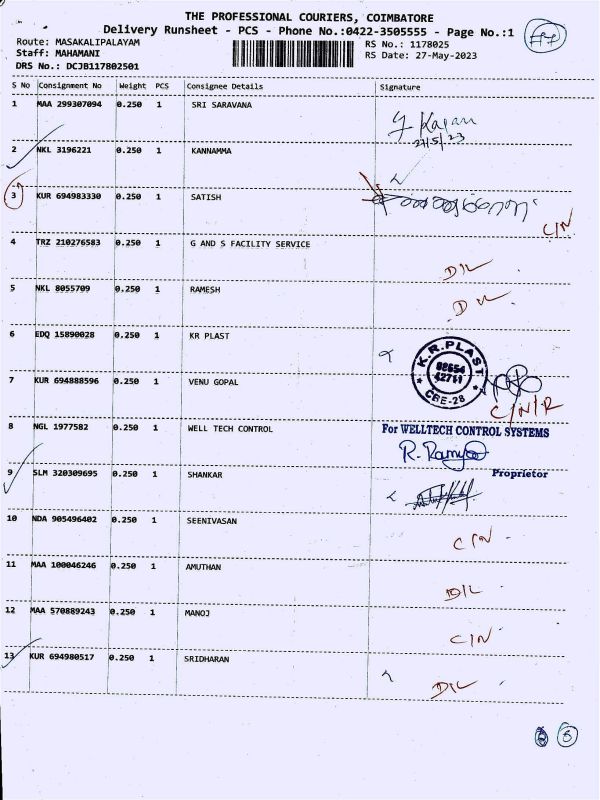 THE PROFESSIONAL COURIERS, COIMBATORE
Delivery Runsheet - PCS - Phone No.:0422-3505555 - Page No.:1
Route: MASAKALIPALAYAM
RS No.: 1178025
Staff: MAHAMANI
RS Date: 27-May-2023
DRS No.: DCJB117802501
S No Consignment No Weight PCS Consignee Details Signature
1 MAA 299307094 0.250 1 SRI SARAVANA
27/5/23
2 NKL 3196221 0.250 1 KANNAMMA
3 KUR 694983330 0.250 1 SATISH
C/N
4 TRZ 210276583 0.250 1 G AND S FACILITY SERVICE
D/L
5 NKL 8055709 0.250 1 RAMESH
D/L
6 EDQ 15890028 0.250 1 KR PLAST
K.R.PLAST
CBE-28
7 KUR 694888596 0.250 1 VENU GOPAL
C/N/R
8 NGL 1977582 0.250 1 WELL TECH CONTROL For WELLTECH CONTROL SYSTEMS
R. Ramya
Proprietor
9 SLM 320309695 0.250 1 SHANKAR
10 NDA 905496402 0.250 1 SEENIVASAN
C/N
11 MAA 100046246 0.250 1 AMUTHAN
D/L
12 MAA 570889243 0.250 1 MANOJ
C/N
13 KUR 694980517 0.250 1 SRIDHARAN
D/L
8